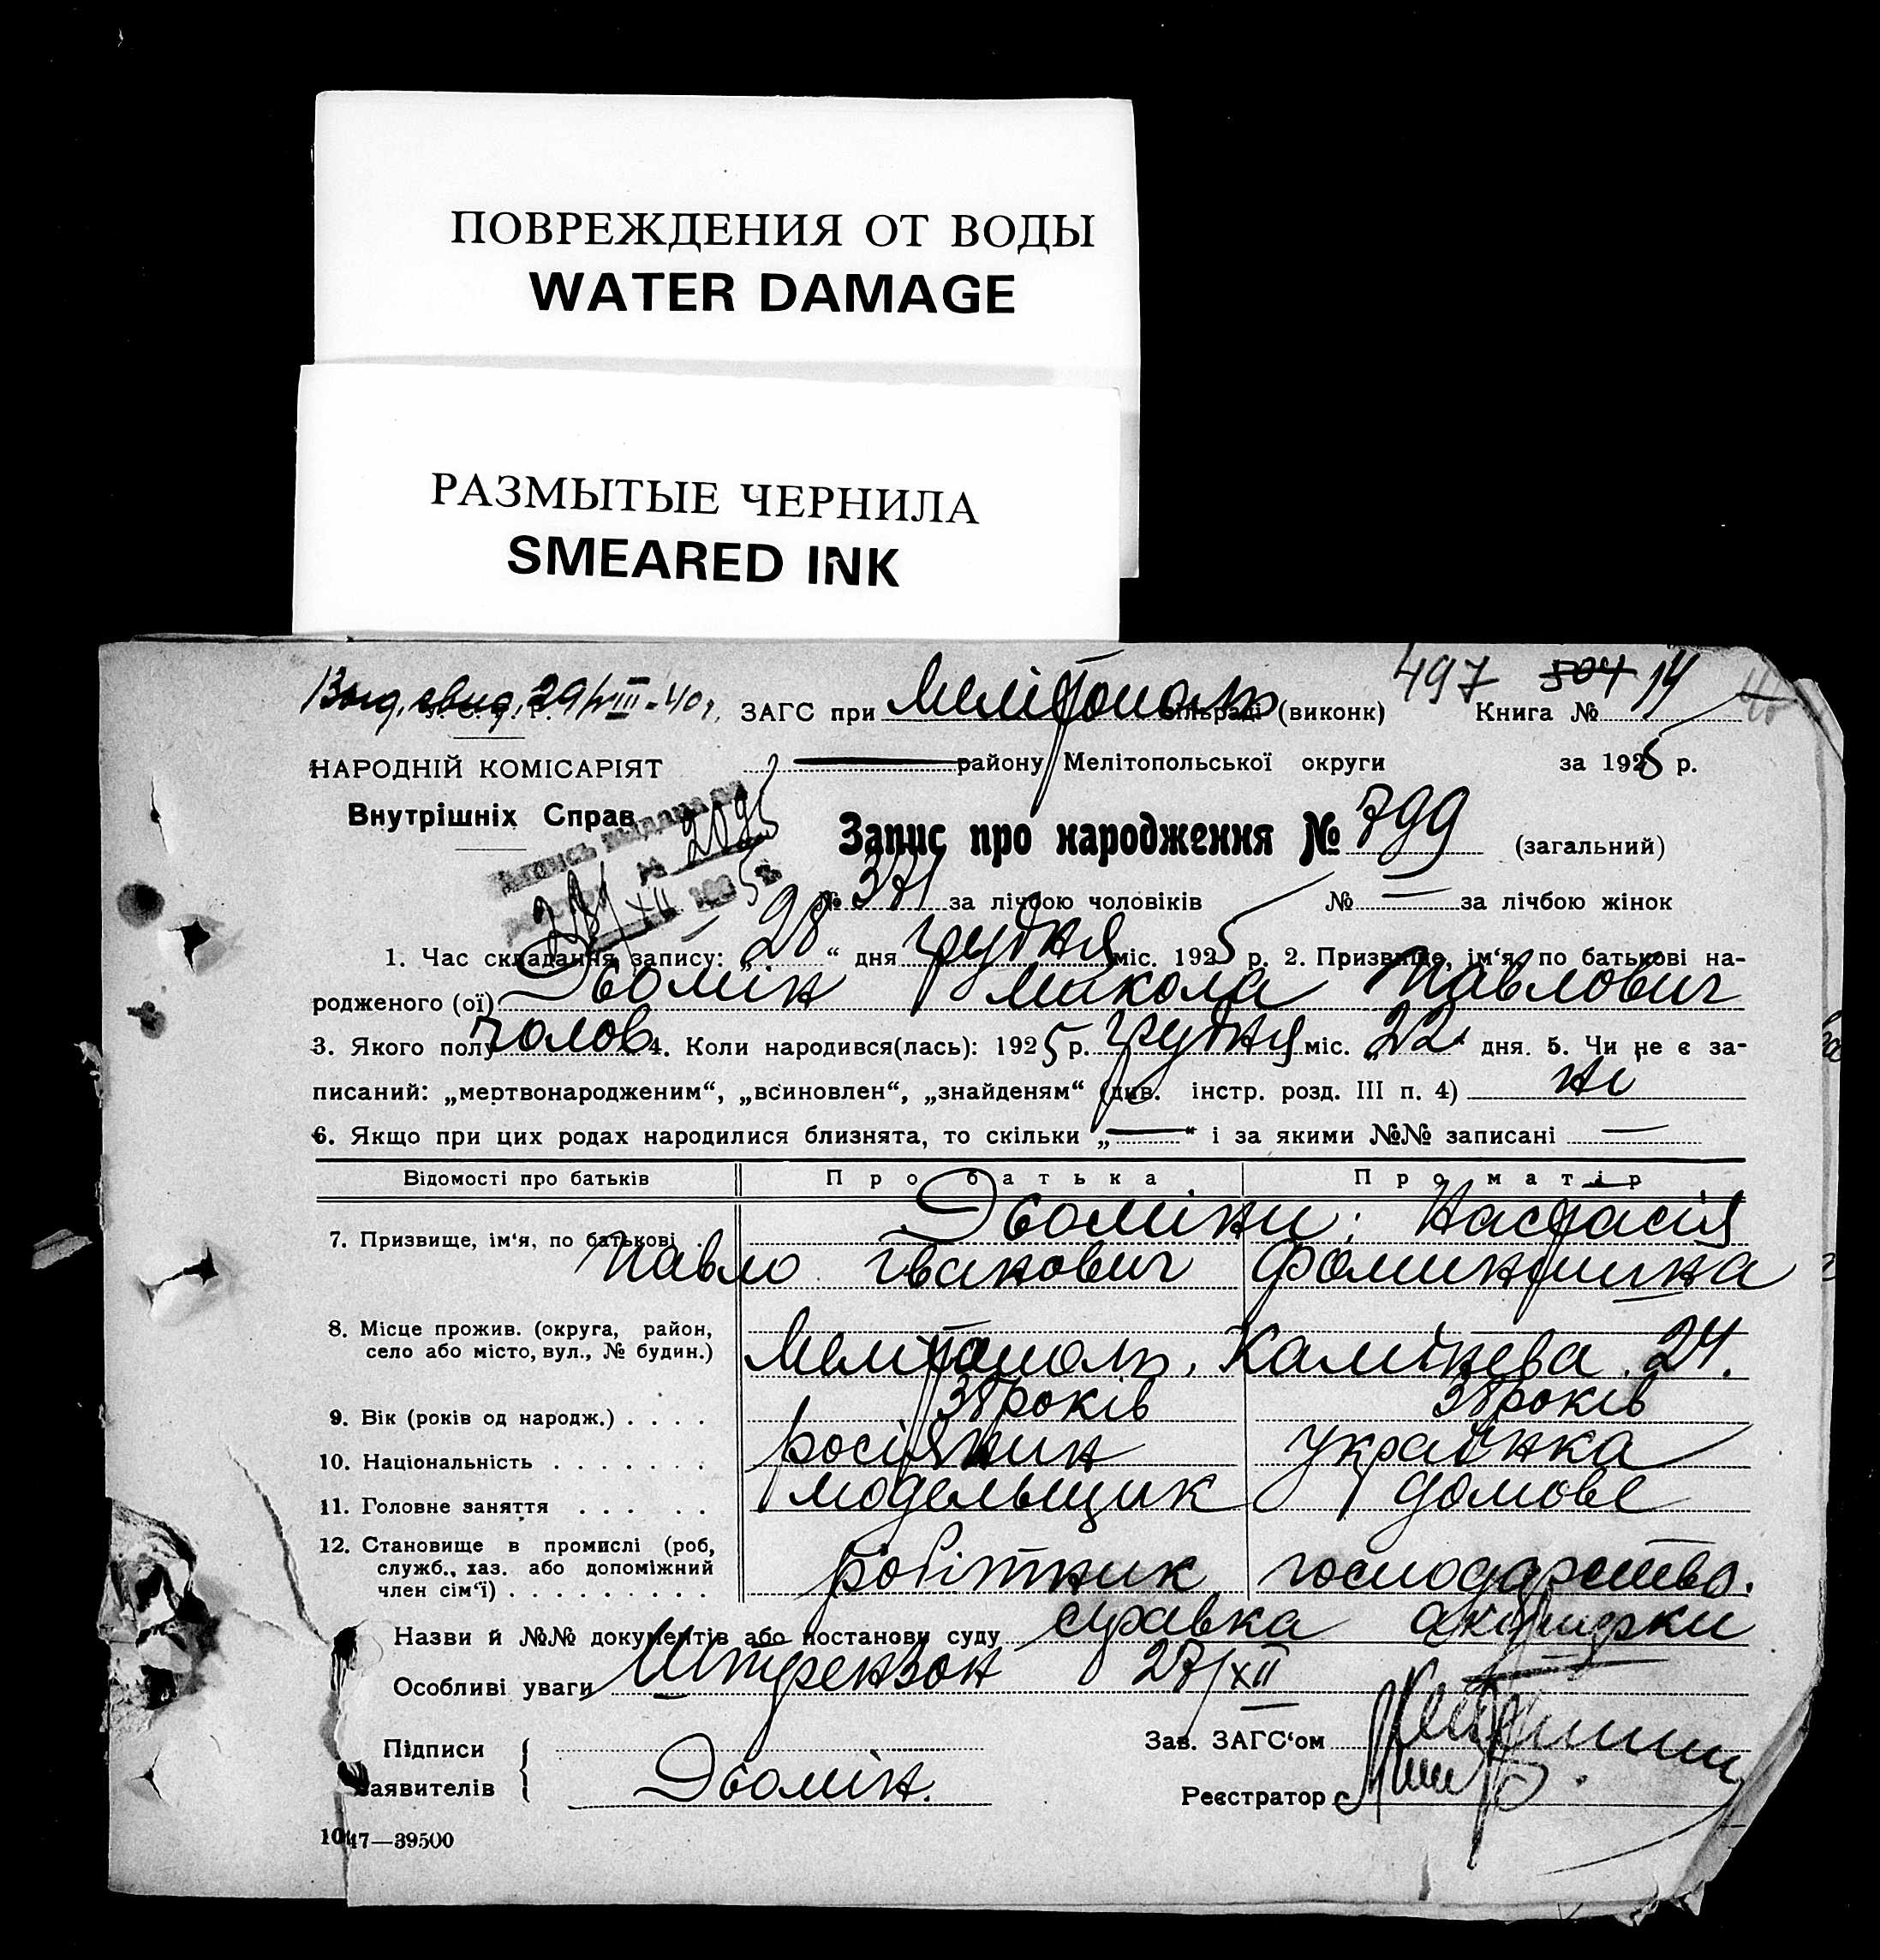 ПОВРЕЖДЕНИЯ ОТ ВОДЫ
WATER DAMAGE
РАЗМЫТЫЕ ЧЕРНИЛА
SMEARED INK
497 504 14
29/VIII-40г. ЗАГС при Мелітополь (виконк) Книга №
НАРОДНІЙ КОМІСАРІЯТ району Мелітопольської округи за 1925 р.
Внутрішніх Справ
2095
Запис про народження № 799 (загальний)
№ 371 за лічбою чоловіків № — за лічбою жінок
1. Час складання запису: „28“ дня грудня міс. 1925 р. 2. Призвище, ім'я, по батькові на-
родженого (ої) Дьомін Микола Павлович
3. Якого полу чолов. 4. Коли народився(лась): 1925 р. грудня міс. „22“ дня. 5. Чи не є за-
писаний: „мертвонародженим“, „всиновлен“, „знайденям“ (див. інстр. розд. III п. 4) ні
6. Якщо при цих родах народилися близнята, то скільки „—“ і за якими №№ записані —
Відомості про батьків Про батька Про матір
7. Призвище, ім'я, по батькові Дьоміни: Настасія
Павло Іванович
8. Місце прожив. (округа, район,
село або місто, вул., № будин.) Мелітополь, Камінева 24.
9. Вік (років од народж.) . . . . 38 років 38 років
10. Національність . . . . . . . росіянин українка
11. Головне заняття . . . . . . модельщик домове
12. Становище в промислі (роб,
служб., хаз. або допоміжний
член сім'ї) . . . . . . . . . робітник господарство.
Назви й №№ документів або постанови суду справка акушерки
Особливі уваги Штрензон 27/XII
Підписи
заявителів Дьомін.
Зав. ЗАГС'ом
Реєстратор
1047—39500